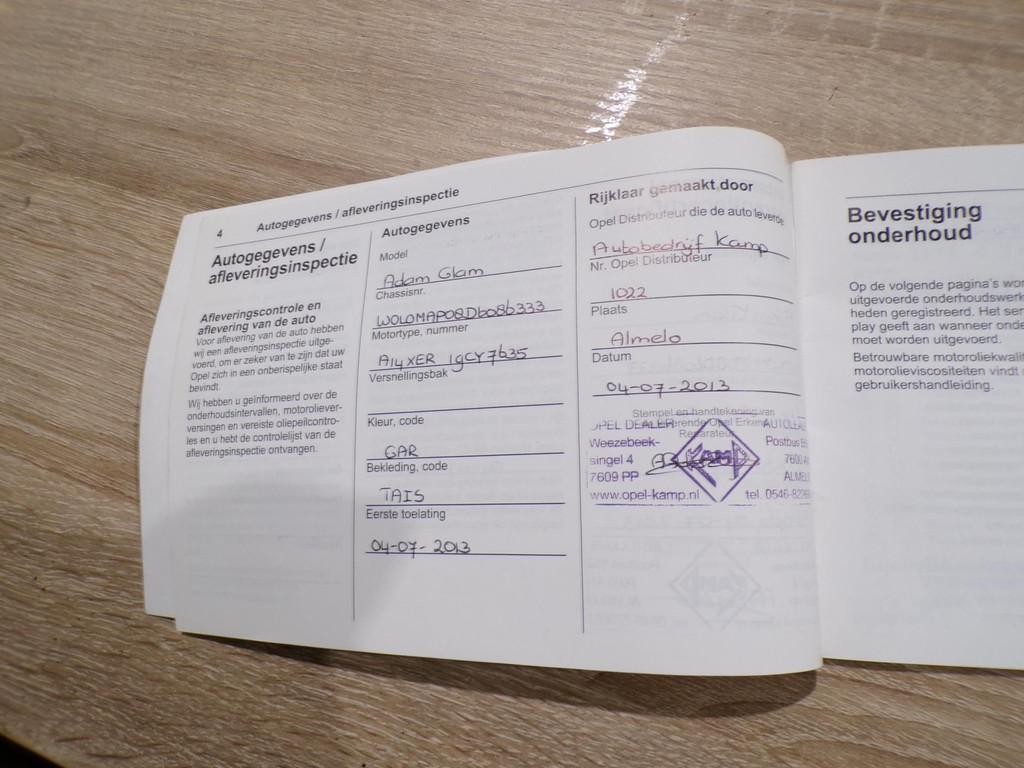 4 Autogegevens / afleveringsinspectie
Autogegevens /
afleveringsinspectie
Afleveringscontrole en
aflevering van de auto
Voor aflevering van de auto hebben
wij een afleveringsinspectie uitge-
voerd, om er zeker van te zijn dat uw
Opel zich in een onberispelijke staat
bevindt.
Wij hebben u geïnformeerd over de
onderhoudsintervallen, motoroliever-
versingen en vereiste oliepeilcontro-
les en u hebt de controlelijst van de
afleveringsinspectie ontvangen.
Autogegevens
Model
Adam Glam
Chassisnr.
W0L0MAP08D6086333
Motortype, nummer
A14XER 19CY7635
Versnellingsbak
Kleur, code
GAR
Bekleding, code
TAIS
Eerste toelating
04-07-2013
Rijklaar gemaakt door
Opel Distributeur die de auto leverde
Autobedrijf Kamp
Nr. Opel Distributeur
1022
Plaats
Almelo
Datum
04-07-2013
Stempel en handtekening van
Reparateur
OPEL DEALER
Weezebeek-
singel 4
7609 PP
www.opel-kamp.nl
KAMP
Postbus
7600
ALMEL
tel. 0546-82
Bevestiging
onderhoud
Op de volgende pagina's wor
uitgevoerde onderhoudswerk
heden geregistreerd. Het ser
play geeft aan wanneer onde
moet worden uitgevoerd.
Betrouwbare motoroliekwali
motorolieviscositeiten vindt
gebruikershandleiding.